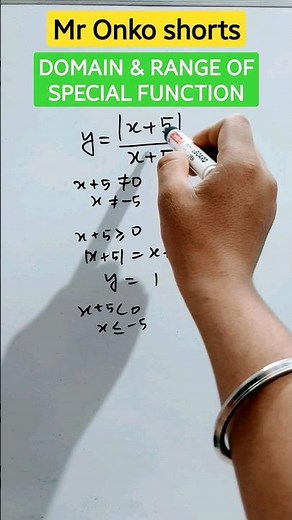 Mr Onko shorts
DOMAIN & RANGE OF
SPECIAL FUNCTION
y = |x+5|
x+5
x+5 ≠ 0
x ≠ -5
x+5 ≥ 0
|x+5| = x
y = 1
x+5 < 0
x ≤ -5